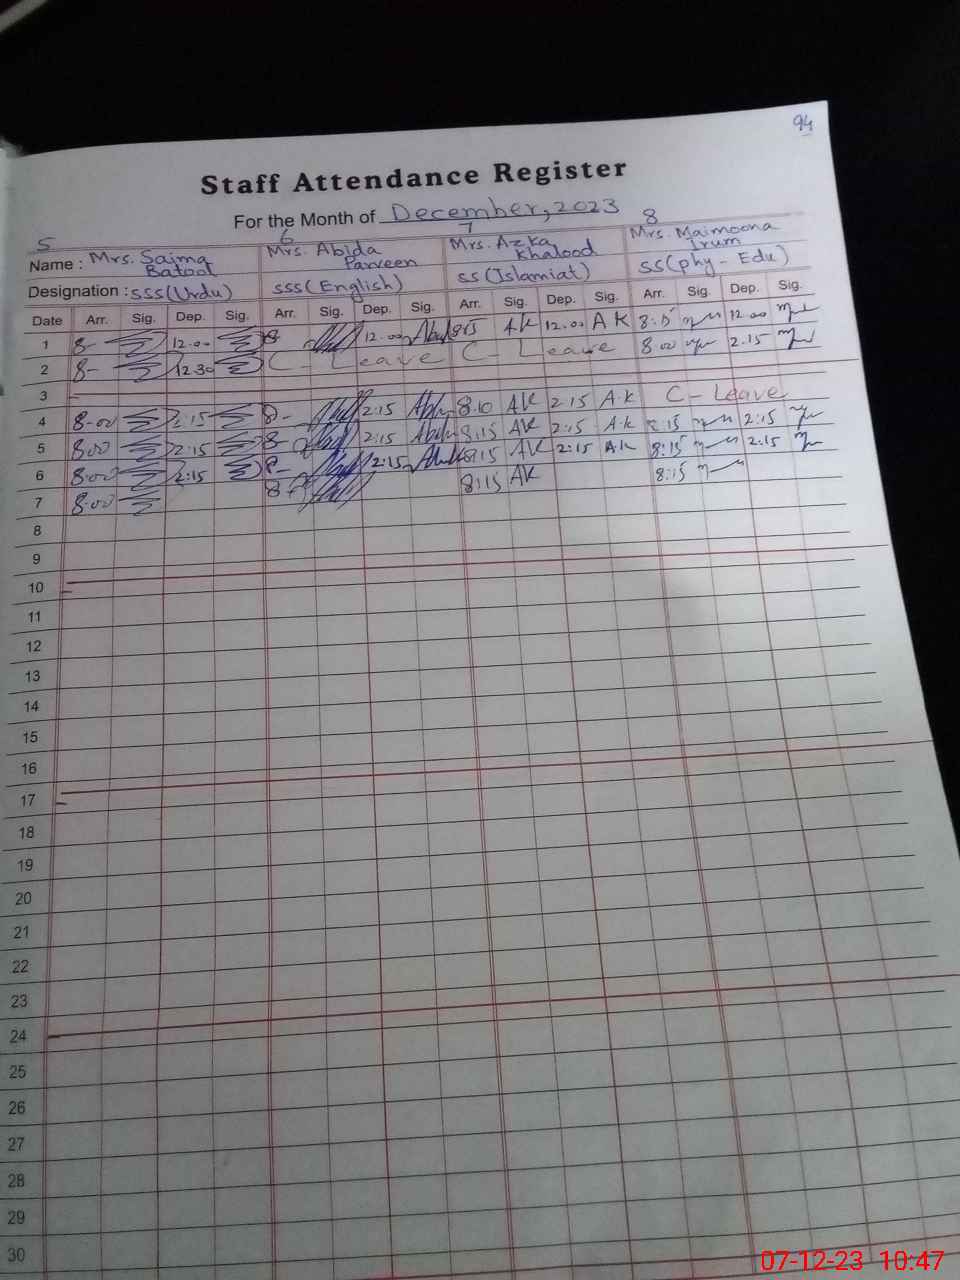 94
Staff Attendance Register
For the Month of December, 2023
5 6 7 8
Name : Mrs. Saima Batool Mrs. Abida Parveen Mrs. Azka Khalood Mrs. Maimoona Irum
Designation : SSS(Urdu) SSS(English) SS(Islamiat) SS(phy-Edu)
Date Arr. Sig. Dep. Sig. Arr. Sig. Dep. Sig. Arr. Sig. Dep. Sig. Arr. Sig. Dep. Sig.
1 8- 12.00 8- 12.00 8:15 AK 12.00 AK 8:15 12.00
2 8- 12.30 C-Leave C-Leave 8.00 2.15
3
4 8-00 2:15 8- 2:15 8:10 AK 2:15 A.K C-Leave
5 8:00 2:15 8- 2:15 8:15 AK 2:15 A.K 8:15 2:15
6 8:00 2:15 8- 2:15 8:15 AK 2:15 AK 8:15 2:15
7 8:00 8:15 AK 8:15
8
9
10
11
12
13
14
15
16
17
18
19
20
21
22
23
24
25
26
27
28
29
30
07-12-23 10:47